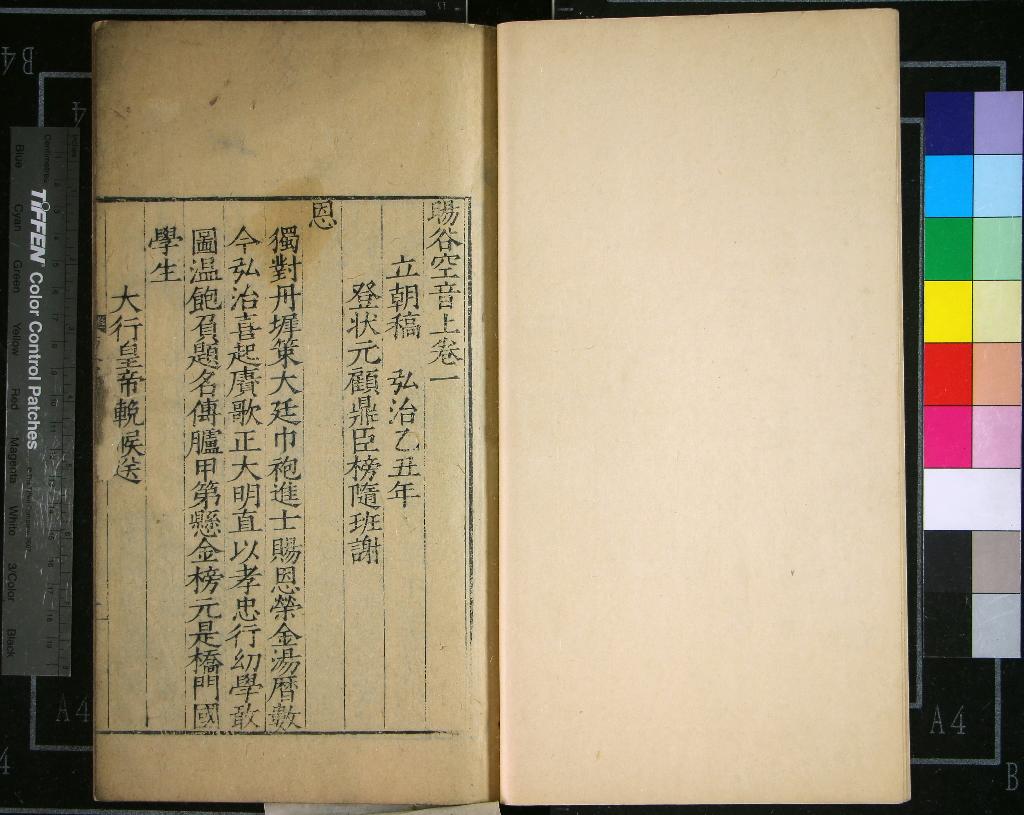 暘谷空音上卷一
立朝稿 弘治乙丑年
登状元顧鼎臣榜隨班謝
恩
獨對丹墀策大廷巾袍進士賜恩榮金湯曆數
今弘治喜起賡歌正大明直以孝忠行幼學敢
圖温飽負題名傳臚甲第懸金榜元是橋門國
學生
大行皇帝輓候送
TIFFEN Color Control Patches
Centimetres
Blue Cyan Green Yellow Red Magenta White 3/Color Black
B4
4
A4
4
A4
B